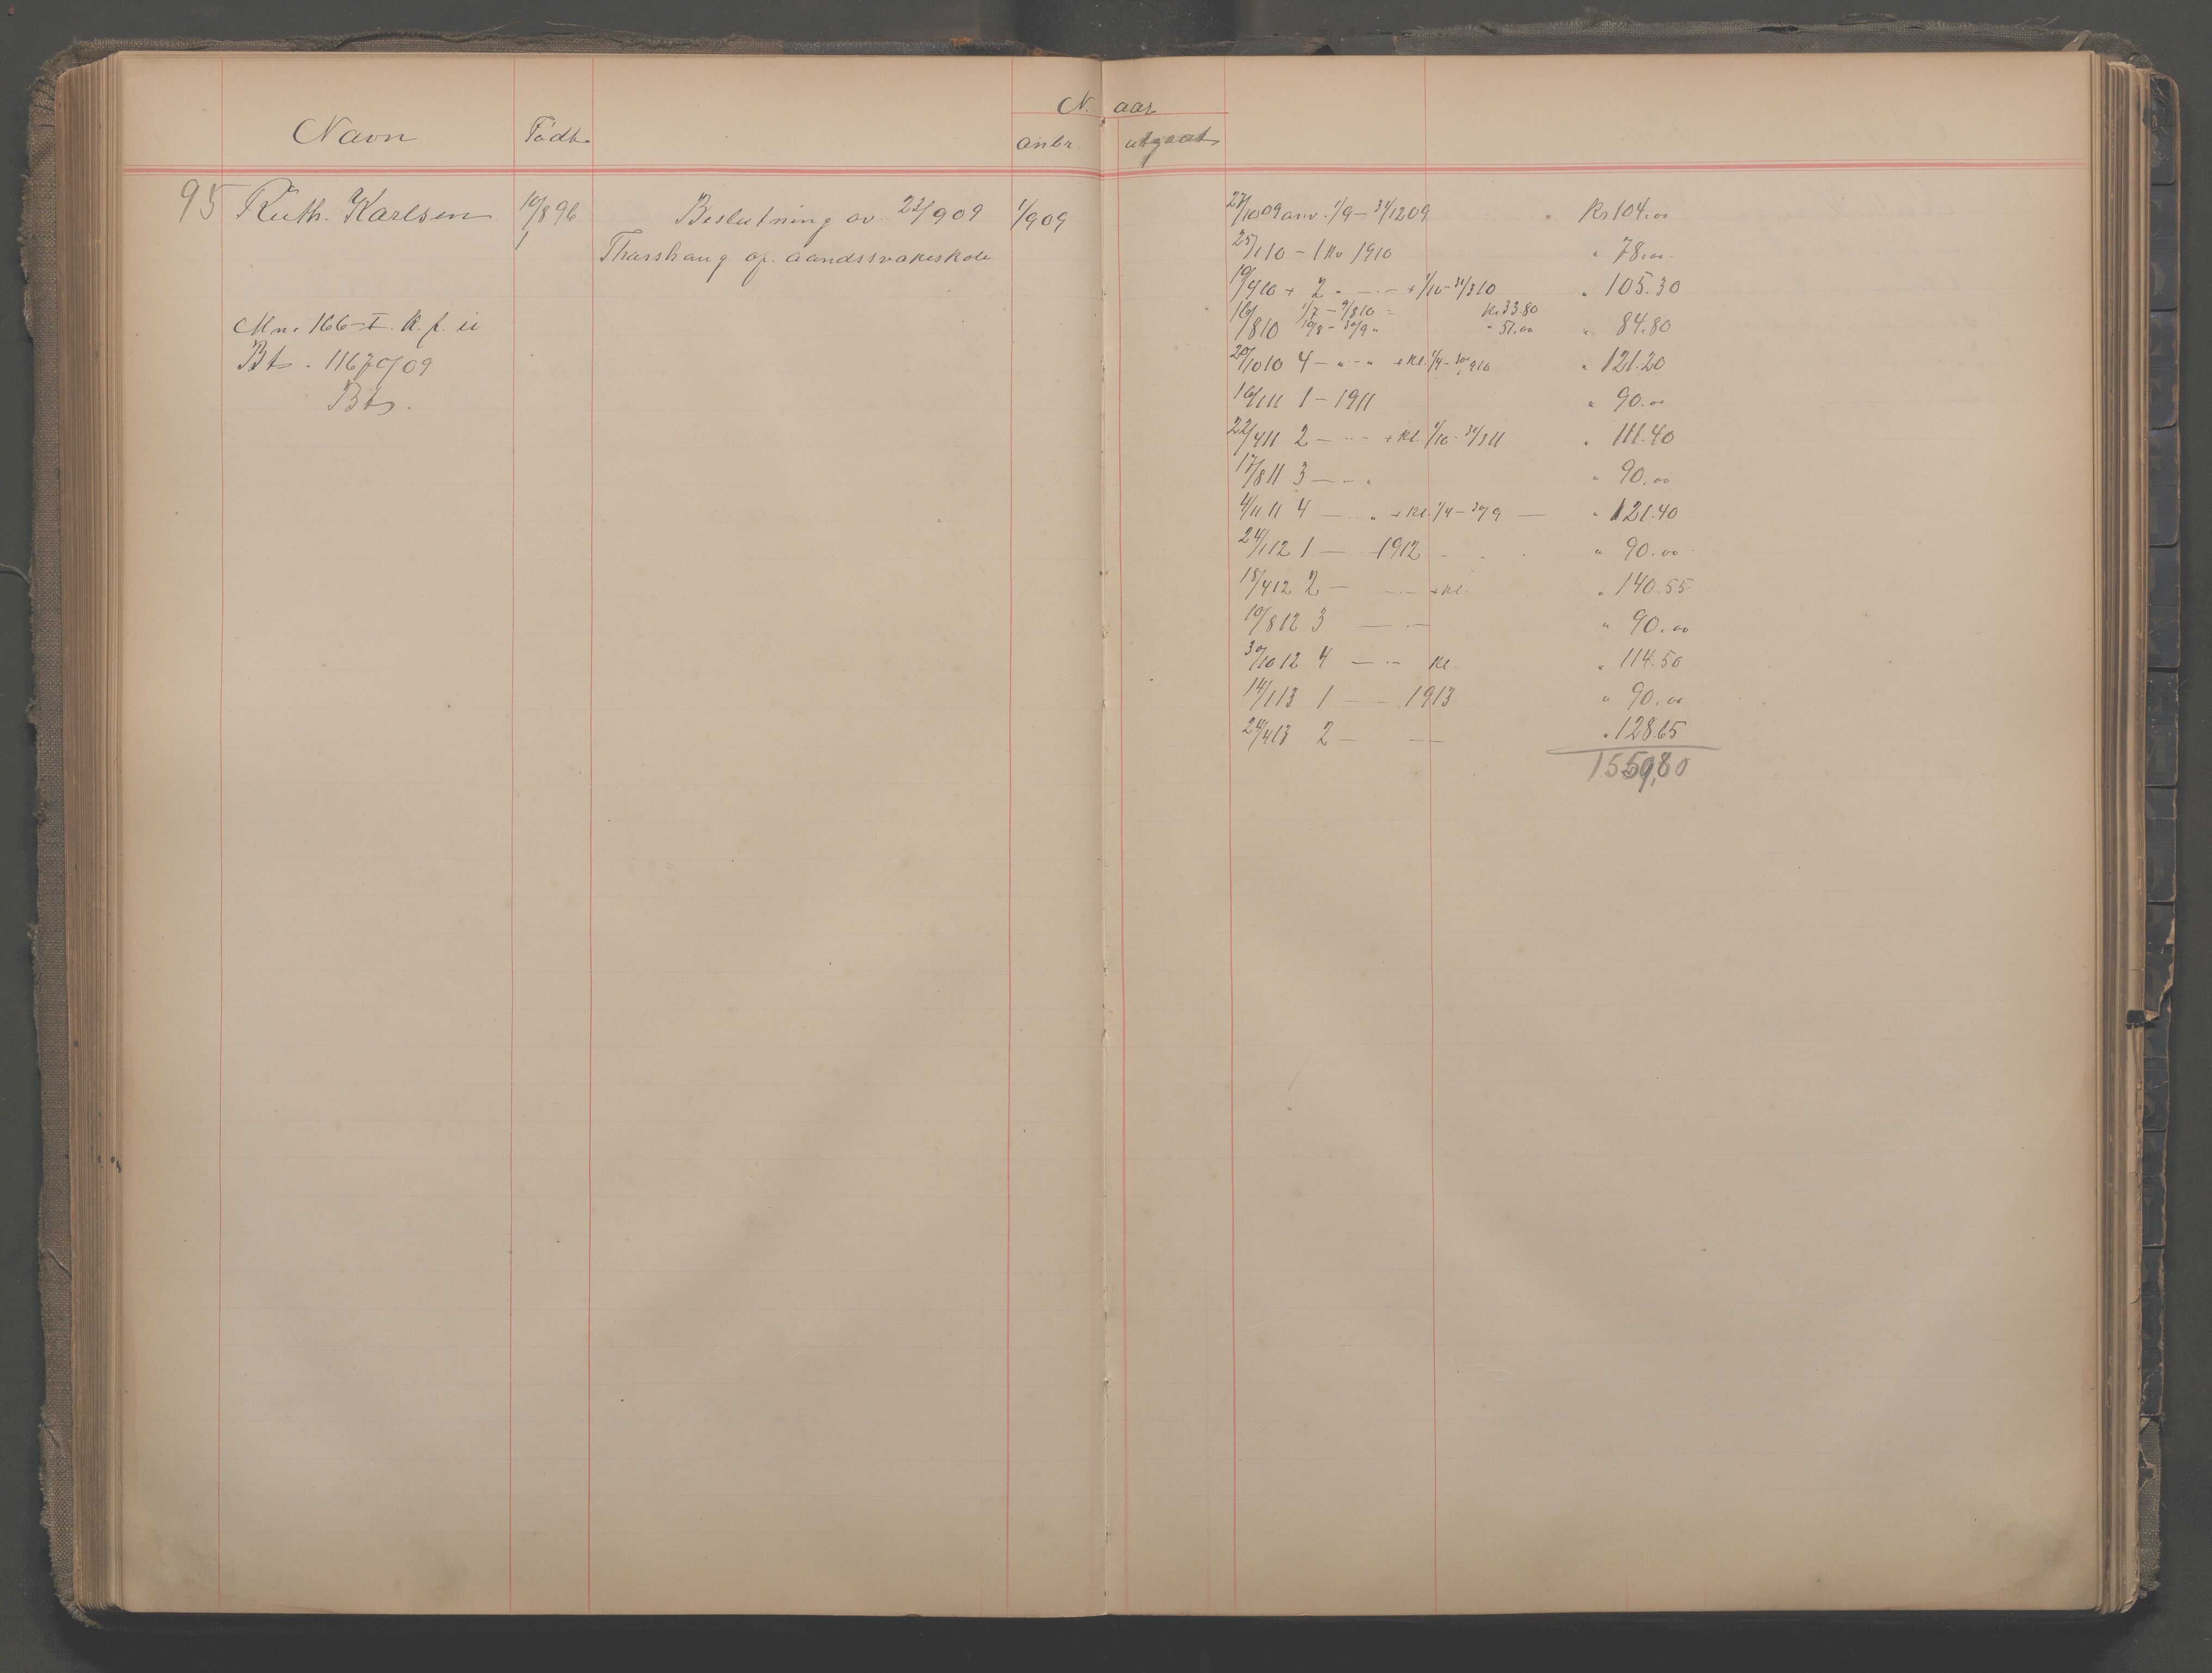 N. aar
Navn Födt. anbr. utgaat
95 Ruth. Karlsen 10/8 96 Beslutning av. 23/9 09 1/9 09
Thorshaug off. aandssvakeskole
Mn. 166-I. k. f. ii
Bts. 11670/09
Bts.
27/10 09 anv. 1/9 - 31/12 09 " Kr 104.00
25/1 10 - 1 kv 1910 " 78.00
19/4 10 + 2 " - " - + 1/10 - 31/3 10 " 105.30
16/8 10 1/7 - 9/8 10 = Kr. 33.80
10/8 - 30/9 " " 51.00 " 84.80
20/10 10 4 - " - " + Kl. 1/4 - 30/9 10 " 121.20
16/1 11 1 - 1911 " 90.00
22/4 11 2 - " - + Kl. 1/10 - 31/3 11 " 111.40
17/8 11 3 - " - " " 90.00
4/11 11 4 - " + Kl. 1/4 - 30/9 - " 121.40
24/1 12 1 - 1912 " 90.00
18/4 12 2 - - " - + Kl. " 140.55
10/8 12 3 - " - " 90.00
30/10 12 4 - " - Kl. " 114.50
14/1 13 1 - - 1913 " 90.00
24/4 13 2 - - " 128.65
1559,80